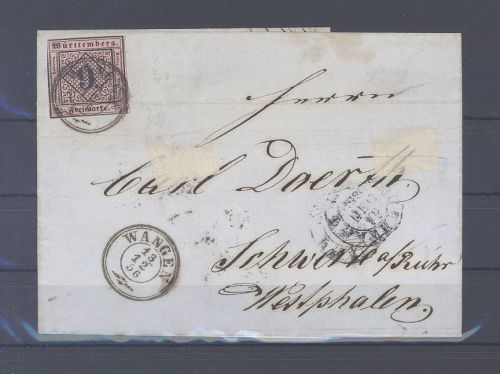 Württemberg.
9
Freimarke.
Herrn
Carl
Schwerte a/Ruhr
Westphalen.
WANGEN
13
12
56